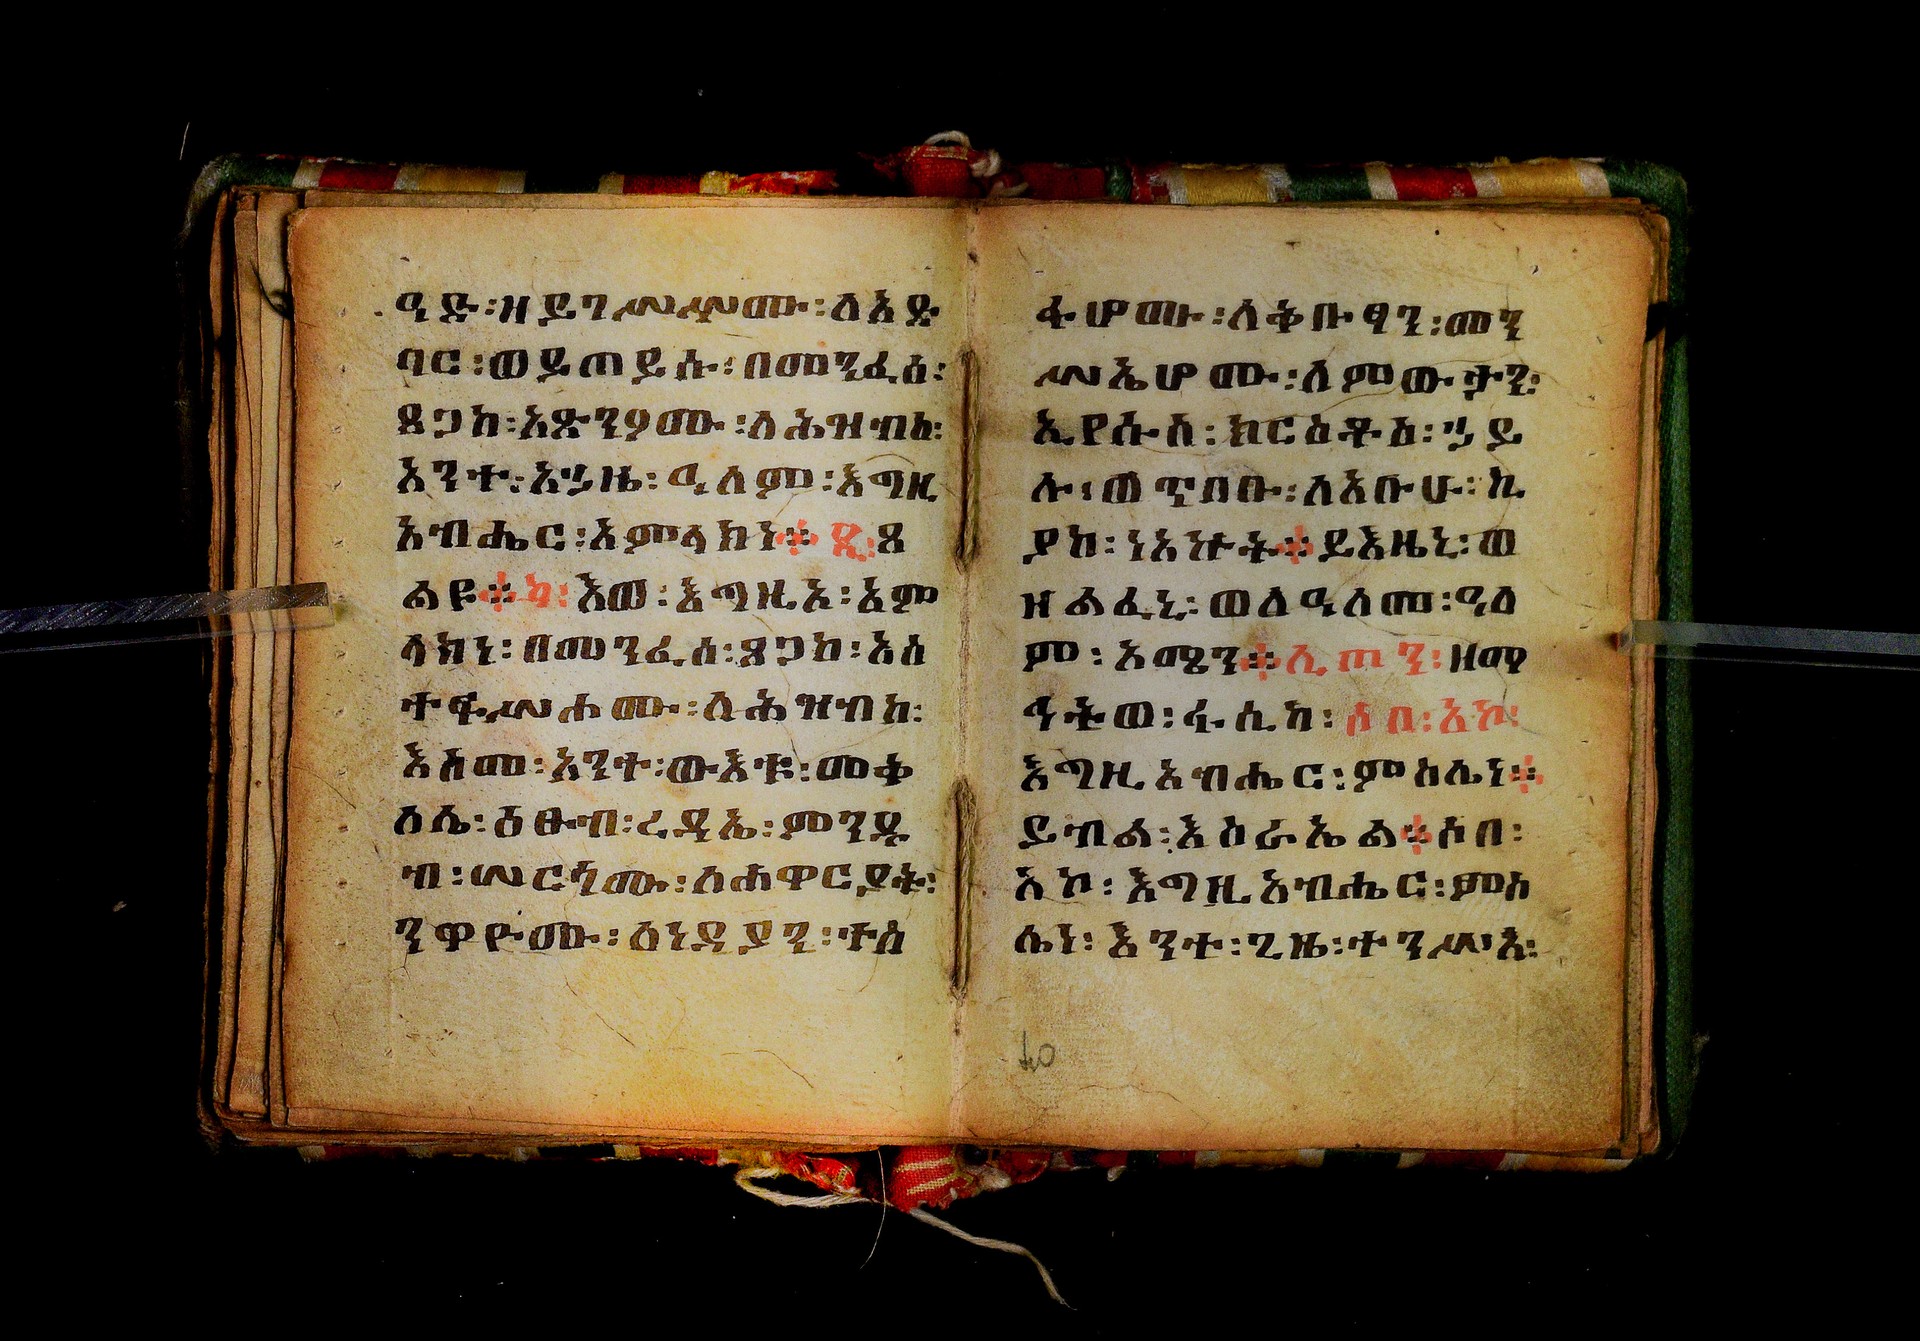 ዓድ፡ዘይንሣሣሙ፡ለአድ
ባር፡ወይጠይሱ፡በመንፈሰ፡
ጸጋከ፡አጽንዖሙ፡ለሕዝብከ፡
እንተ፡አኃዜ፡ዓለም፡እግዚ
አብሔር፡አምላክነ። ዲ፡ጸ
ልዩ። ካ፡እወ፡እግዚኦ፡አም
ላክነ፡በመንፈሰ፡ጸጋከ፡አስ
ተፍሣሐሙ፡ለሕዝብከ፡
እስመ፡አንተ፡ውእቱ፡መቅ
ሰሴ፡ዕፁብ፡ረዳኤ፡ምንዱ
ብ፡መርኆሙ፡ለሐዋርያት፡
ንዋዮሙ፡ለነዳያን፡ተስ
ፋሆሙ፡ለቅቡፃን፡መን
ሣኤሆሙ፡ለምውታን፡
ኢየሱስ፡ክርስቶስ፡ኃይ
ሉ፡ወጥበቡ፡ለአቡሁ፡ኪ
ያከ፡ነአኵት። ይእዜኒ፡ወ
ዘልፈኒ፡ወለዓለመ፡ዓለ
ም፡አሜን። ሊጦን፡ዘሜ
ዓትወ፡ፋሲካ፡ሶበ፡አኮ፡
እግዚአብሔር፡ምስሌነ።
ይብል፡እስራኤል። ሶበ፡
አኮ፡እግዚአብሔር፡ምስ
ሌነ፡እንተ፡ጊዜ፡ተንሥአ፡
40